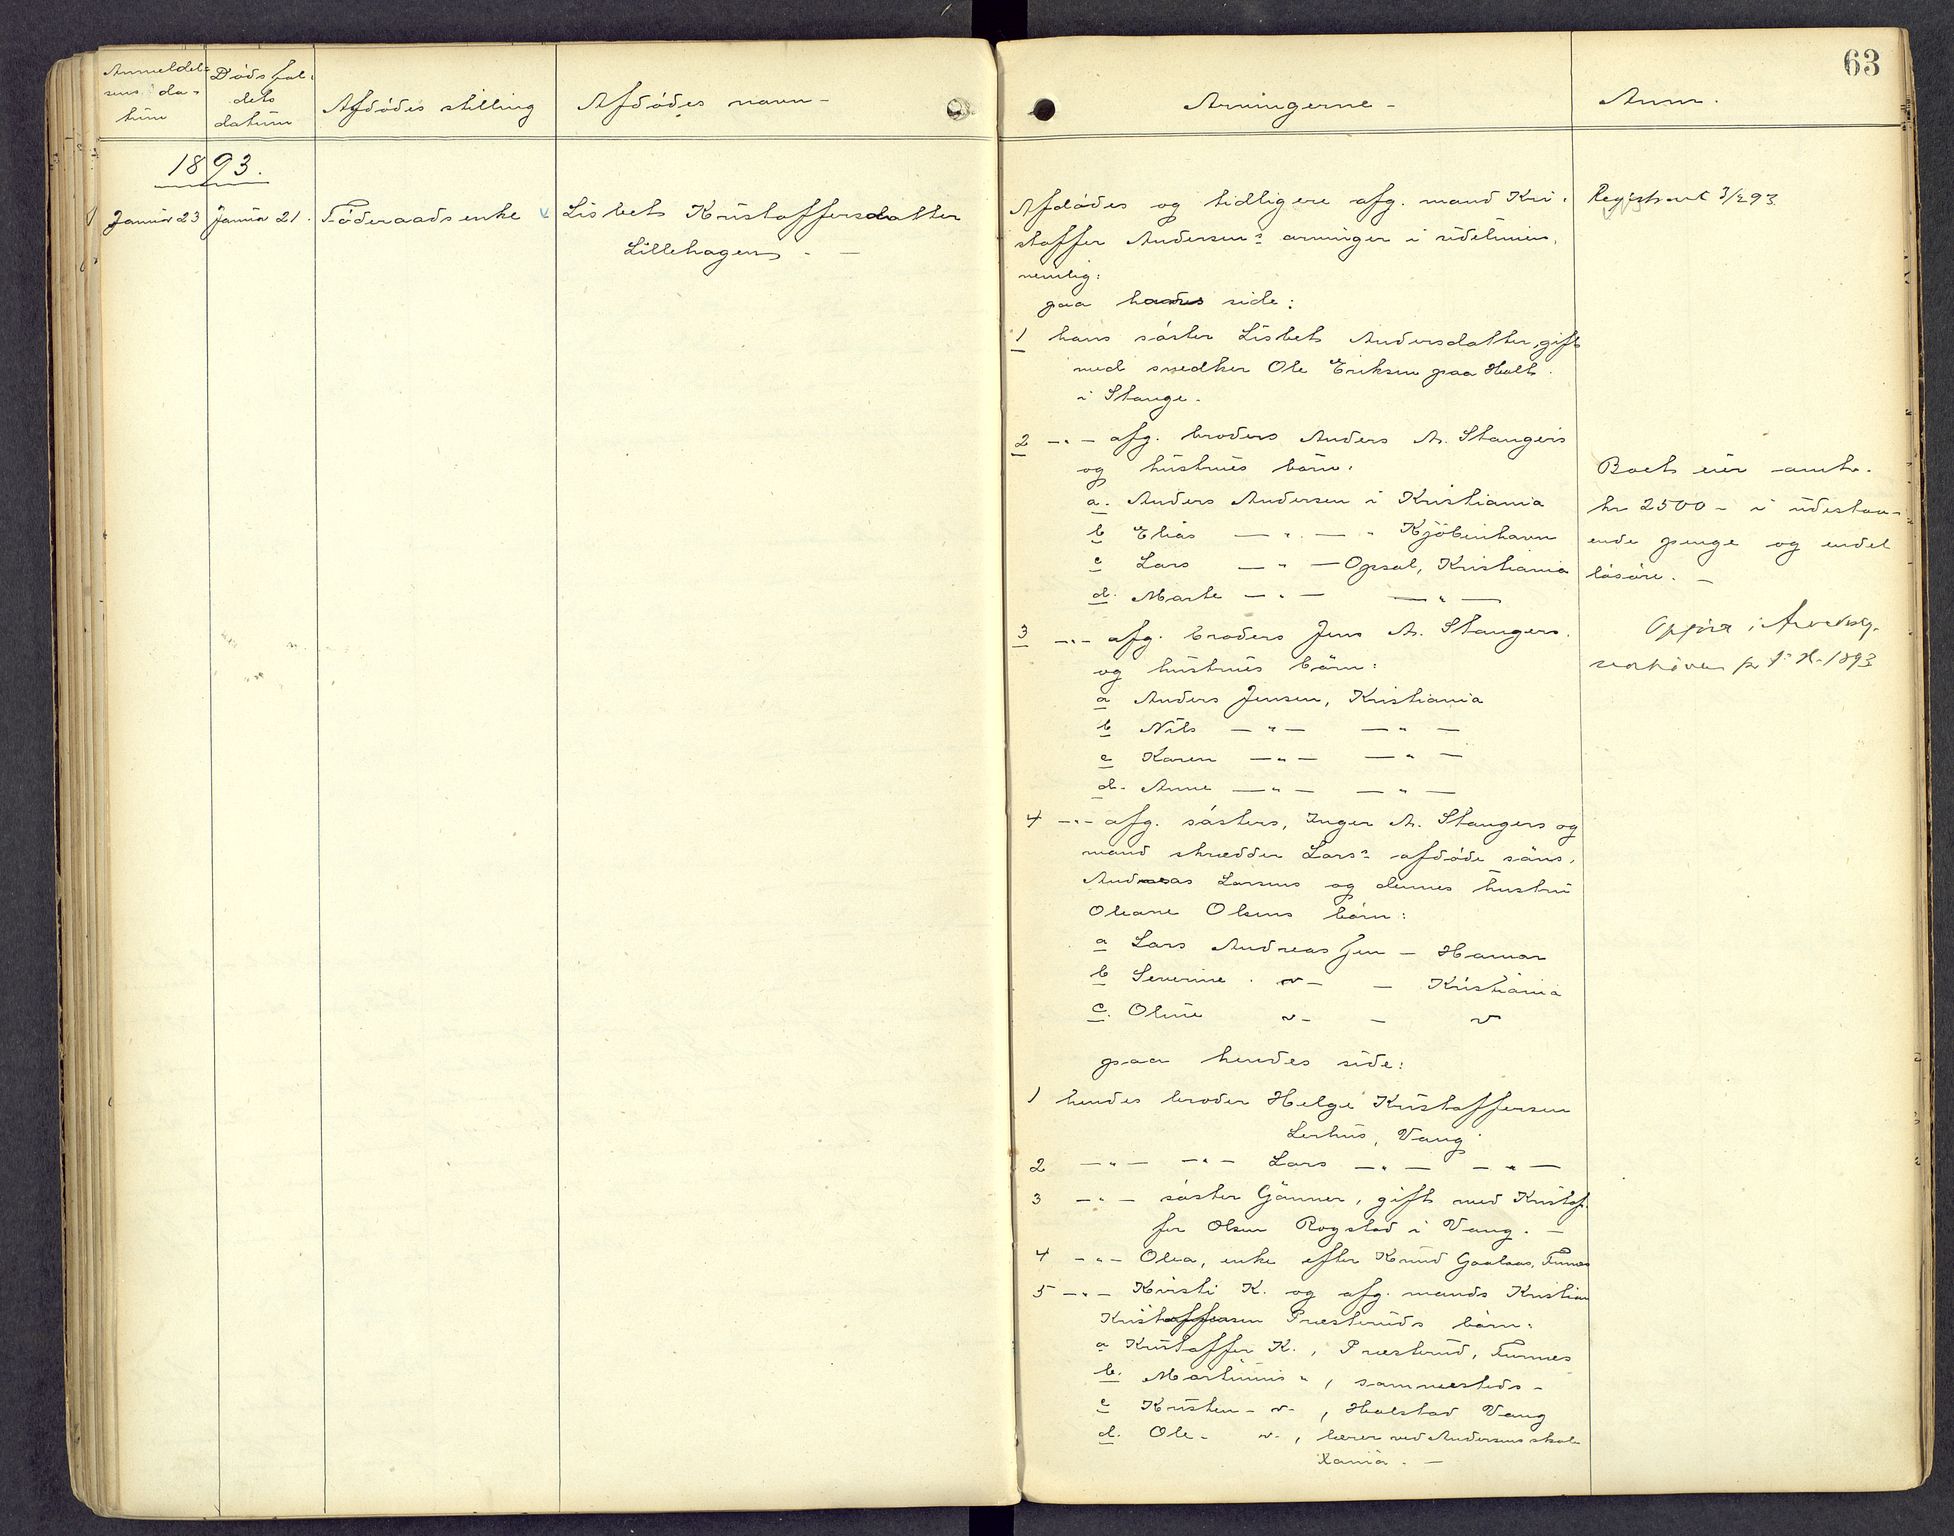 63
Anmeldel=
sens da-
tum
Dødsfal-
dets
datum
Afdødes stilling
Afdødes navn -
Arvingerne -
Anm.
1893.
Januar 23
Januar 21.
Føderaadsenke
Lisbet Kristoffersdatter
Lillehagen -
Afdødes og tidligere afg. mand Kri-
stoffer Andersens arvinger i sidelinien,
nemlig:
paa hans side:
1 hans søster Lisbet Andersdatter, gift
med snedker Ole Eriksen paa Holt
i Stange.
2 -"- afg. broders Anders A. Stangers
og hustrues børn:
a. Anders Andersen i Kristiania
b Elias - " - " Kjöbenhavn
c Lars - " - Opsal, Kristiania
d. Marte - " - - " -
3 -"- afg. broders Jens A. Stangers
og hustrues børn:
a Anders Jensen, Kristiania
b Nils - " - - " -
c Karen - " - - " -
d. Anne - " - - " -
4 -"- afg. søsters, Inger A. Stangers og
mand skrædder Lars' afdøde søns,
Andreas Larsens og dennes hustru
Oleane Olsens børn:
a Lars Andreassen - Hamar
b Severine " - - Kristiania
c. Oline " - - "
paa hendes side:
1 hendes broder Helge Kristoffersen
Lerhus, Vang
2 - " - - " - Lars - " - - " -
3 - " - søster Gunner, gift med Kristof-
fer Olsen Rogstad i Vang. -
4 - " - Olea, enke efter Knud Gaalaas, Furnes
5 - " - Kristi K. og afg. mands Kristian
Kristoffersen Præsteruds børn:
a Kristoffer K., Præsterud, Furnes
b. Martinus " , sammesteds -
c Kristen - " - , Holstad Vang
d. Ole - " - , lærer ved Andersens skole
Xania. -
Registreret 3/2 93
Boet eier omtr.
kr 2500 - i udestaa-
ende penge og endel
løsøre. -
1893